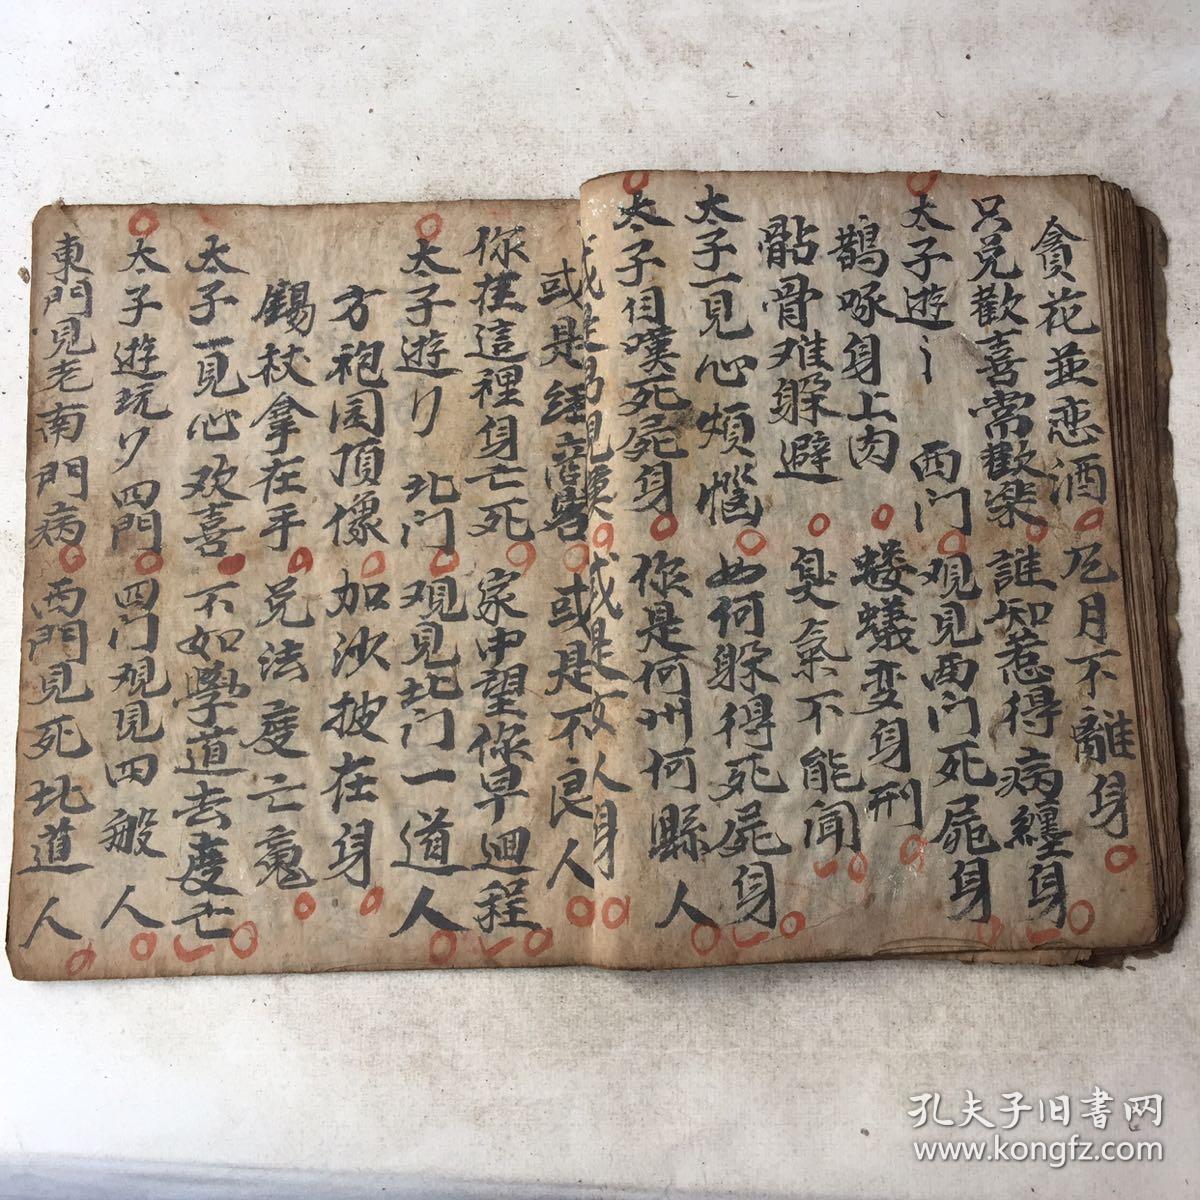 貪花並恋酒 尽月不離身
只兑歡喜常歡楽 誰知惹得病纏身
太子遊〻 西门 观見西门死屍身
鵲啄身上肉 蝼蟻变身刑
骷骨难躲避 臭氣不能闻
太子一見心煩惱 如何躲得死屍身
太子自嘆死屍身 你是何州何縣人
或是 男兒漢 或是女人身
或是經商客 或是不良人
你在這裡身亡死 家中望你早迴程
太子遊 北门 观見北门一道人
方袍圆顶像 加沙披在身
錫杖拿在手 兑法度亡䰟
太子一見心欢喜 不如學道去度亡
太子遊玩 四門 四门观見四般人
東門見老南門病 西門見死北道人
孔夫子旧書网
www.kongfz.com